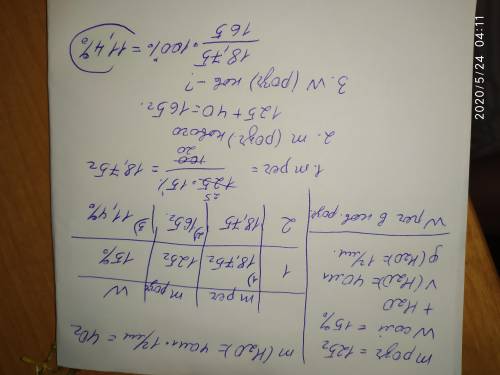 m розч = 125г
W солі = 15%
+ H₂O
V(H₂O) = 40мл
ρ(H₂O) = 1г/мл
W реч в нов. розч.
m(H₂O) = 40мл · 1г/мл = 40г
m реч | m розч | W
1 | 1) 18,75г | 125г | 15%
2 | 18,75 | 2) 165г. | 3) 11,4%
1. m реч = 125 · 15% / 100 = 18,75г
25
20
2. m (розч) нового
125 + 40 = 165г.
3. W (розч) нов - ?
18,75 / 165 · 100% = 11,4%
2020/5/24 04:11